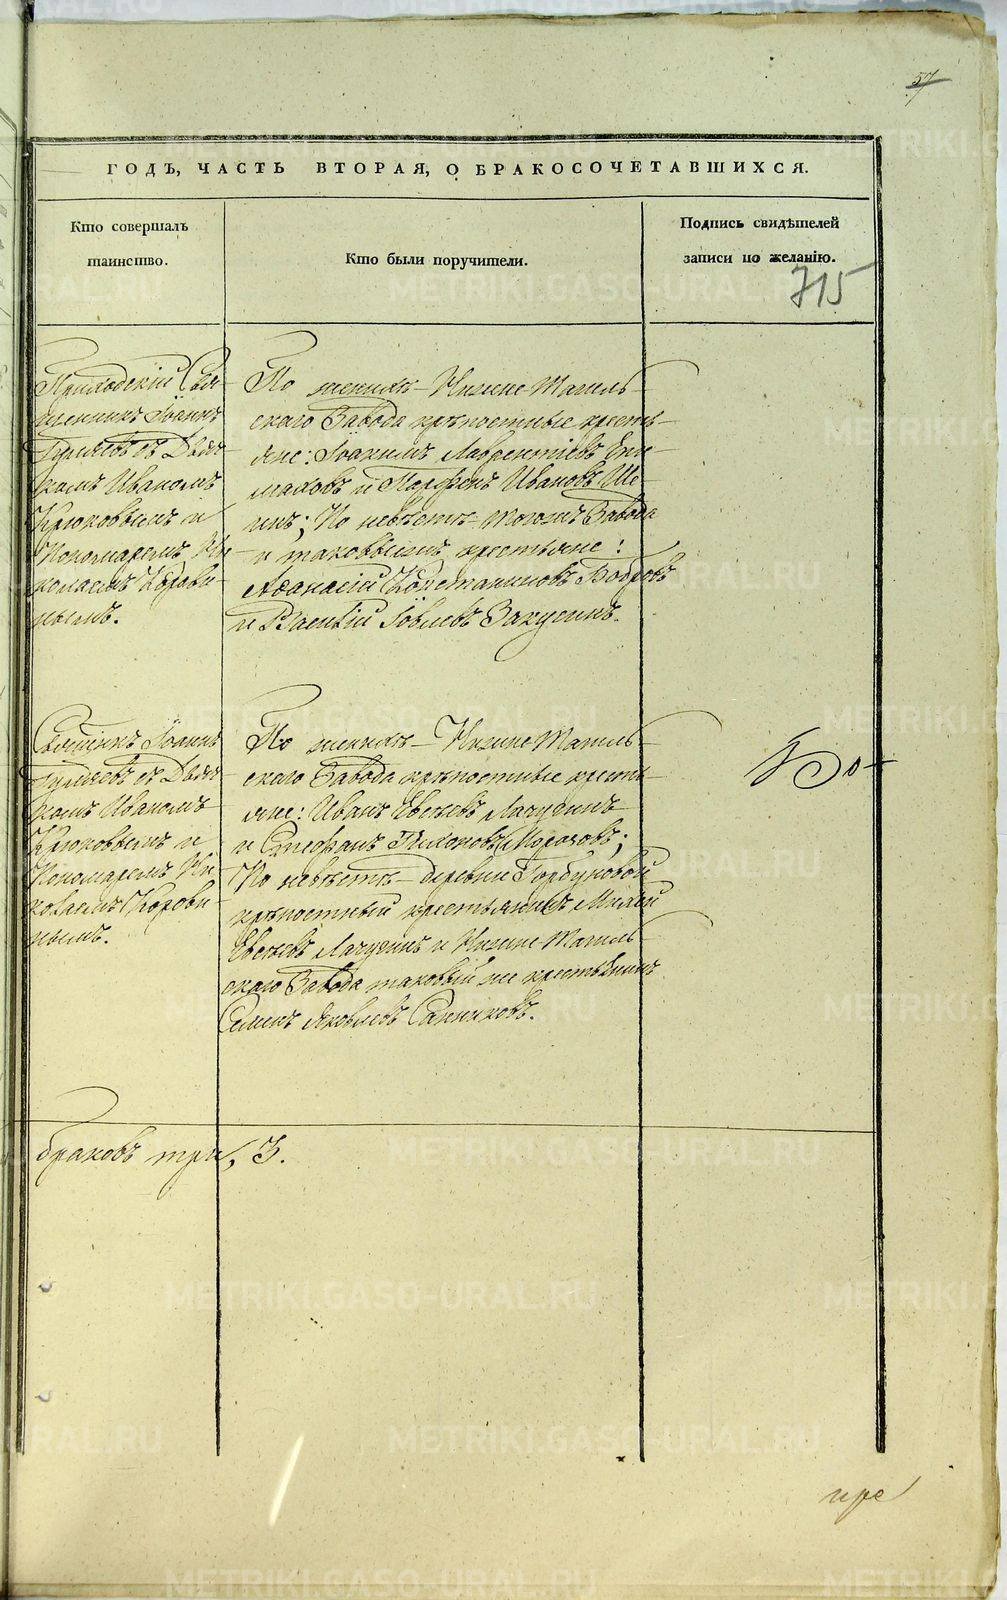 57
ГОДЪ, ЧАСТЬ ВТОРАЯ, О БРАКОСОЧЕТАВШИХСЯ.
Кто совершалъ
таинство.
Кто были поручители.
Подпись свидѣтелей
записи по желанію.
715
Приходскій Свя-
щенникъ Іоаннъ
съ Дьяч-
комъ Иваномъ
Крюковымъ и
Пономаремъ Ни-
колаемъ Корови-
нымъ.
По женихѣ – Нижне Тагиль-
скаго Завода крѣпостные кресть-
яне: Іоакимъ Лаврентіевъ Ени-
маховъ и Парфенъ Ивановъ Ше-
инъ; По невѣстѣ – тогожъ Завода
и таковыежъ крестьяне:
Аѳанасій Константиновъ Бобровъ
и Василій Іовлевъ Закусинъ.
Священникъ Іоаннъ
съ Дьяч-
комъ Иваномъ
Крюковымъ и
Пономаремъ Ни-
колаемъ Корови-
нымъ.
По женихѣ – Нижне Тагиль-
скаго Завода крѣпостные кресть-
яне: Иванъ Евсѣевъ Лачугинъ
и Стефанъ Тихоновъ Морозовъ;
По невѣстѣ – деревни Горбуновой
крѣпостный крестьянинъ
Евсѣевъ Лачугинъ и Нижне Тагиль-
скаго Завода таковый же крестьянинъ
Семенъ Яковлевъ Санниковъ.
браковъ три, 3.
METRIKI.GASO-URAL.RU